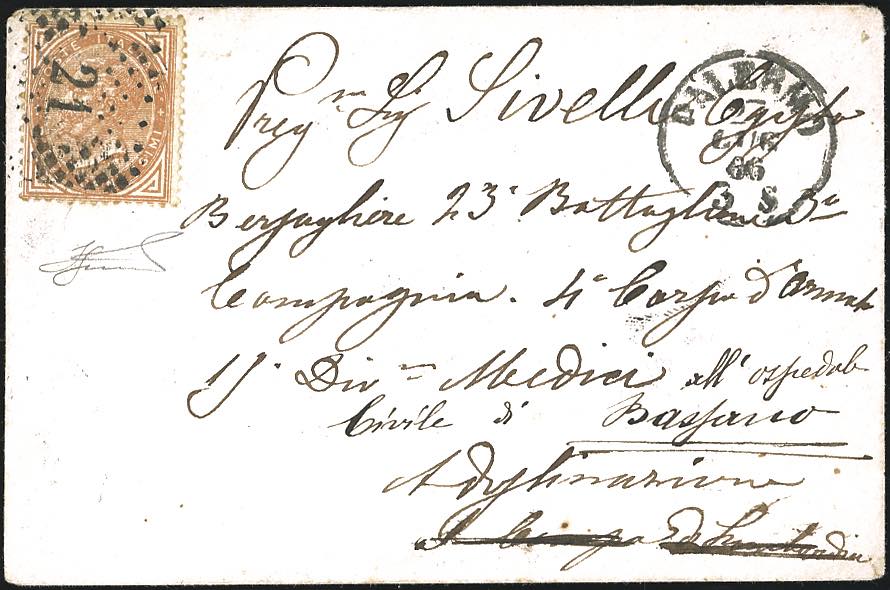 21
PALERMO
LUG
66
3 S
Preg.mo Sig. Sivelli Egisto
Bersagliere 23° Battaglione 3a
Compagnia. 4° Corpo d'Armata
15a Div.ne Medici all'ospedale
Civile di Bassano
A destinazione